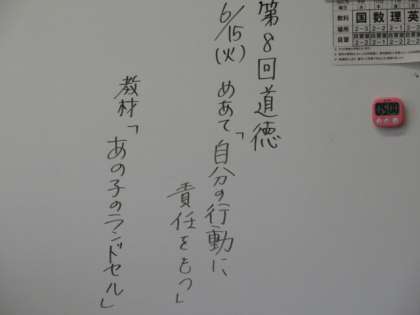 第8回道徳
6/15(火) めあて「自分の行動に
責任をもつ」
教材「あの子のランドセル」
国 数 理 英